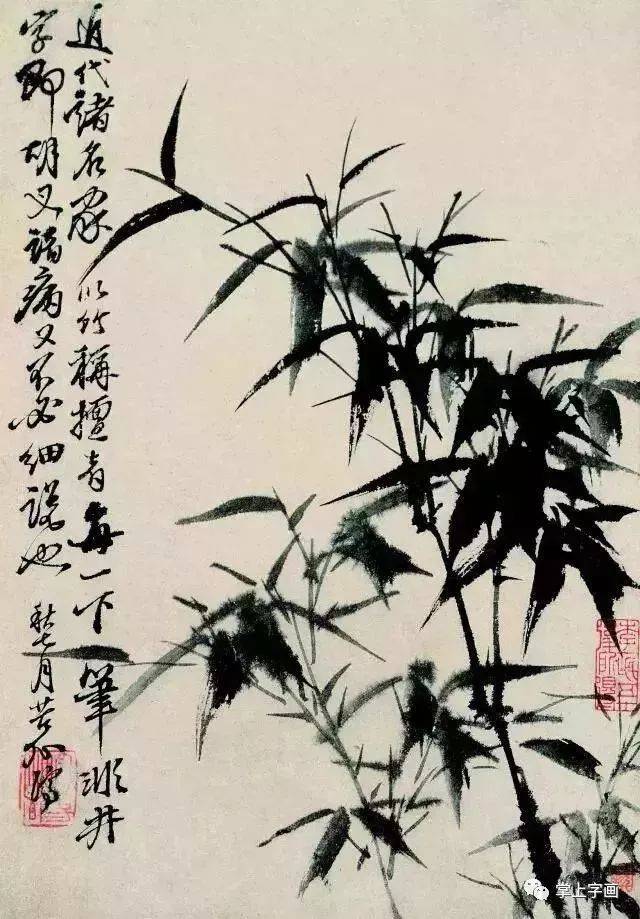 近代諸名家以竹稱擅者每一下筆非井
字即胡叉諸病又不必細說也秋七月苦瓜濟
掌上字画